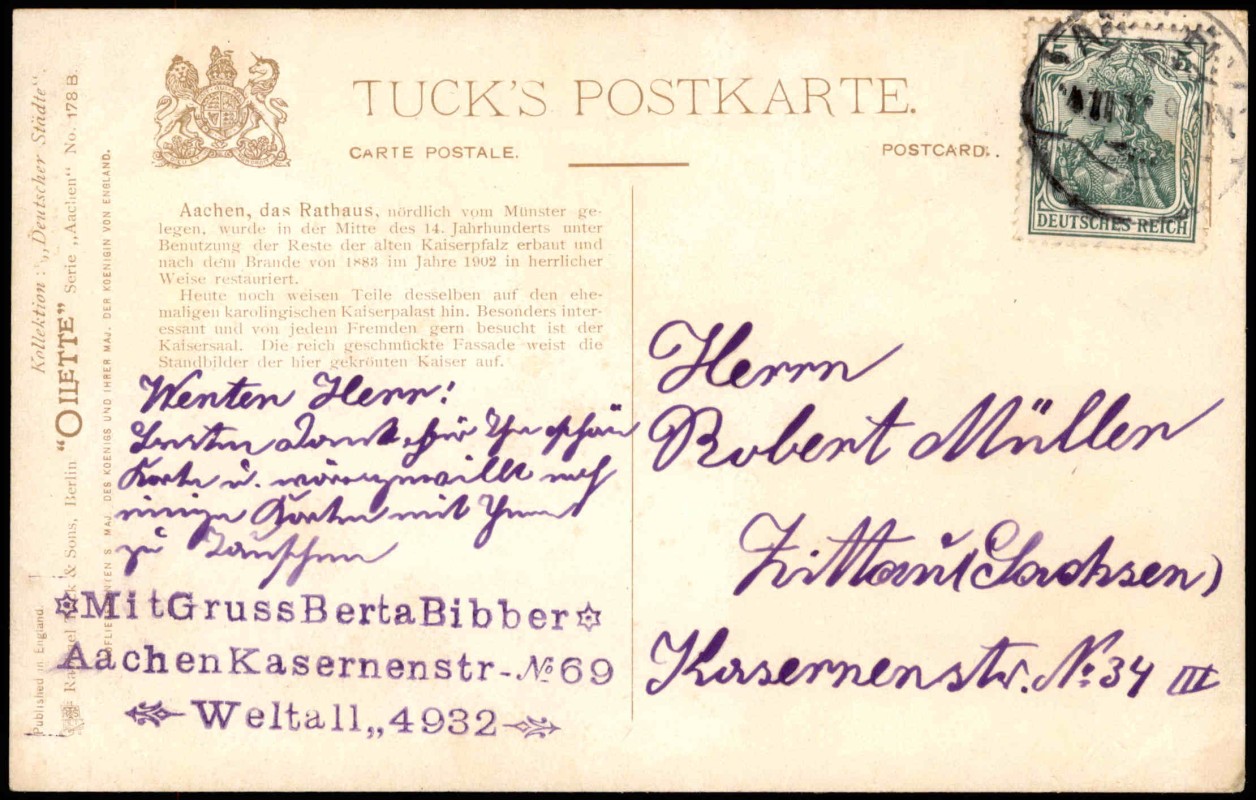 TUCK'S POSTKARTE.
CARTE POSTALE.
POSTCARD.
5 5
DEUTSCHES REICH
Kollektion: „Deutscher Städte“.
Raphael Tuck & Sons, Berlin "OILETTE" Serie „Aachen“ No. 178 B.
HOFLIEFERANTEN S. MAJ. DES KOENIGS UND IHRER MAJ. DER KOENIGIN VON ENGLAND.
Published in England.
Aachen, das Rathaus, nördlich vom Münster ge-
legen, wurde in der Mitte des 14. Jahrhunderts unter
Benutzung der Reste der alten Kaiserpfalz erbaut und
nach dem Brande von 1883 im Jahre 1902 in herrlicher
Weise restauriert.
Heute noch weisen Teile desselben auf den ehe-
maligen karolingischen Kaiserpalast hin. Besonders inter-
essant und von jedem Fremden gern besucht ist der
Kaisersaal. Die reich geschmückte Fassade weist die
Standbilder der hier gekrönten Kaiser auf.
Werter Herr!
Besten Dank für Ihre schön
Karte u. noch
einige Karten mit Ihnen
zu Tauschen
MitGrussBertaBibber
AachenKasernenstr-№69
Weltall„4932
Herrn
Robert Müller
Zittau (Sachsen)
Kasernenstr. No. 34 III